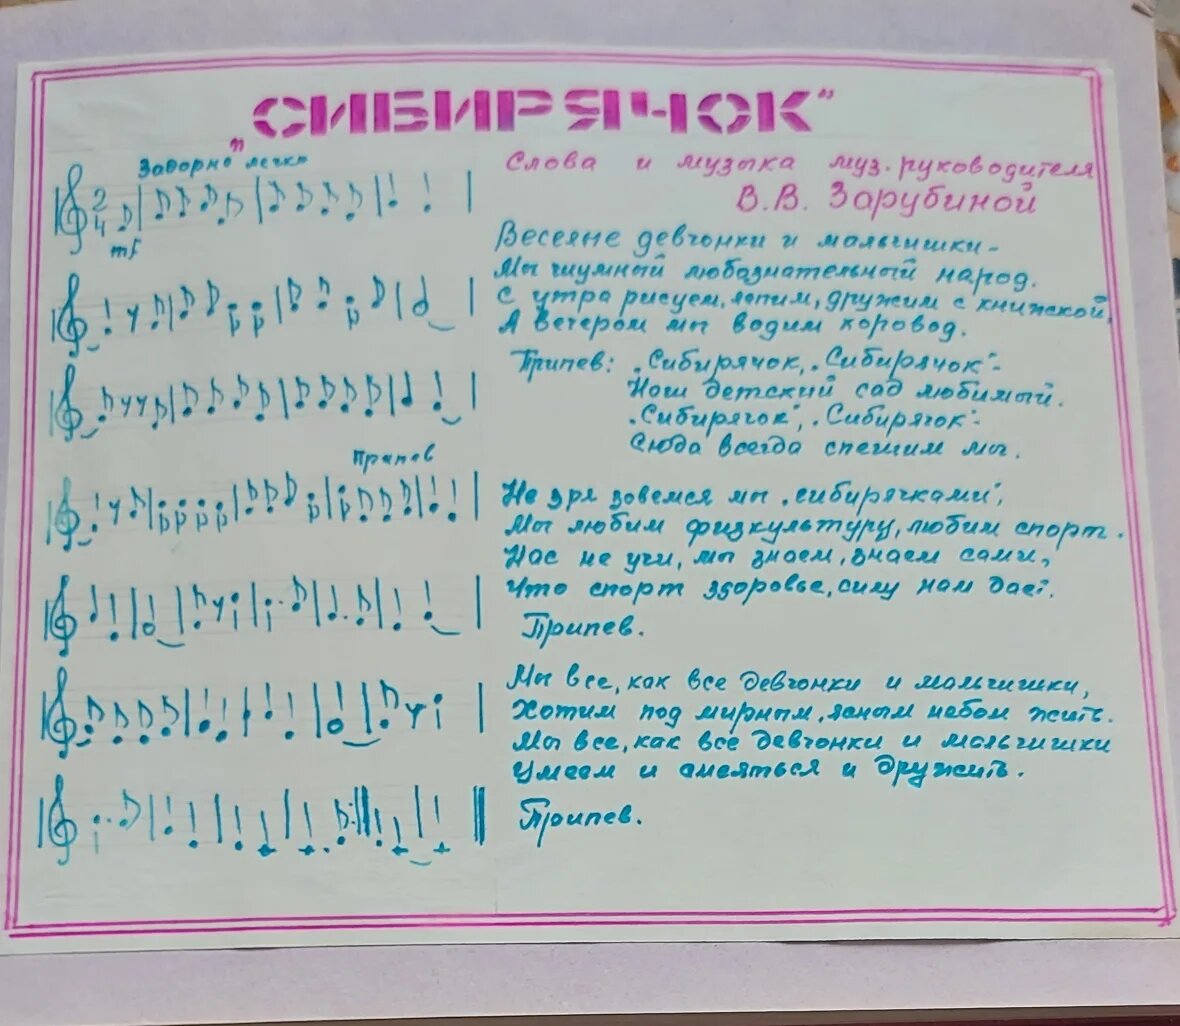 „СИБИРЯЧОК"
Задорно легко
Слова и музыка муз. руководителя
В.В. Зарубиной
2
4
mf
Веселые девчонки и мальчишки –
Мы шумный любознательный народ.
С утра рисуем, лепим, дружим с книжкой,
А вечером мы водим хоровод.
Припев: „Сибирячок, „Сибирячок" –
Наш детский сад любимый.
„Сибирячок", „Сибирячок" –
Сюда всегда спешим мы.
Припев
Не зря зовемся мы „сибирячками",
Мы любим физкультуру, любим спорт.
Нас не учи, мы знаем, знаем сами,
Что спорт здоровье, силу нам дает.
Припев.
Мы все, как все девчонки и мальчишки,
Хотим под мирным, ясным небом жить.
Мы все, как все девчонки и мальчишки
Умеем и смеяться и дружить.
Припев.